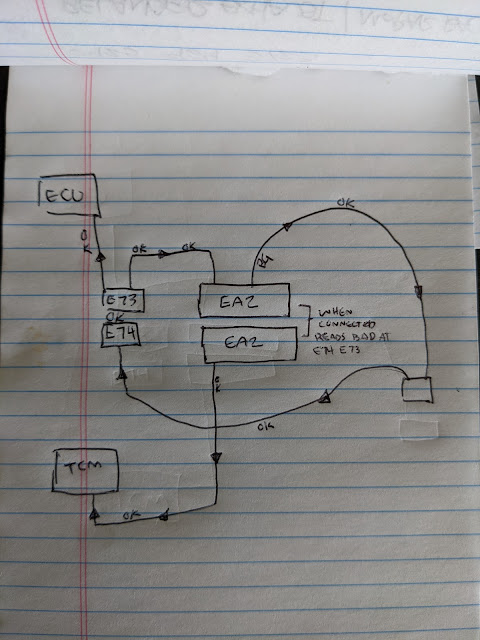 OK
ECU
OK
OK
OK
E73
EA2
OK
WHEN
CONNECTED
READS BAD AT
E74 E73
E74
EA2
OK
OK
TCM
OK